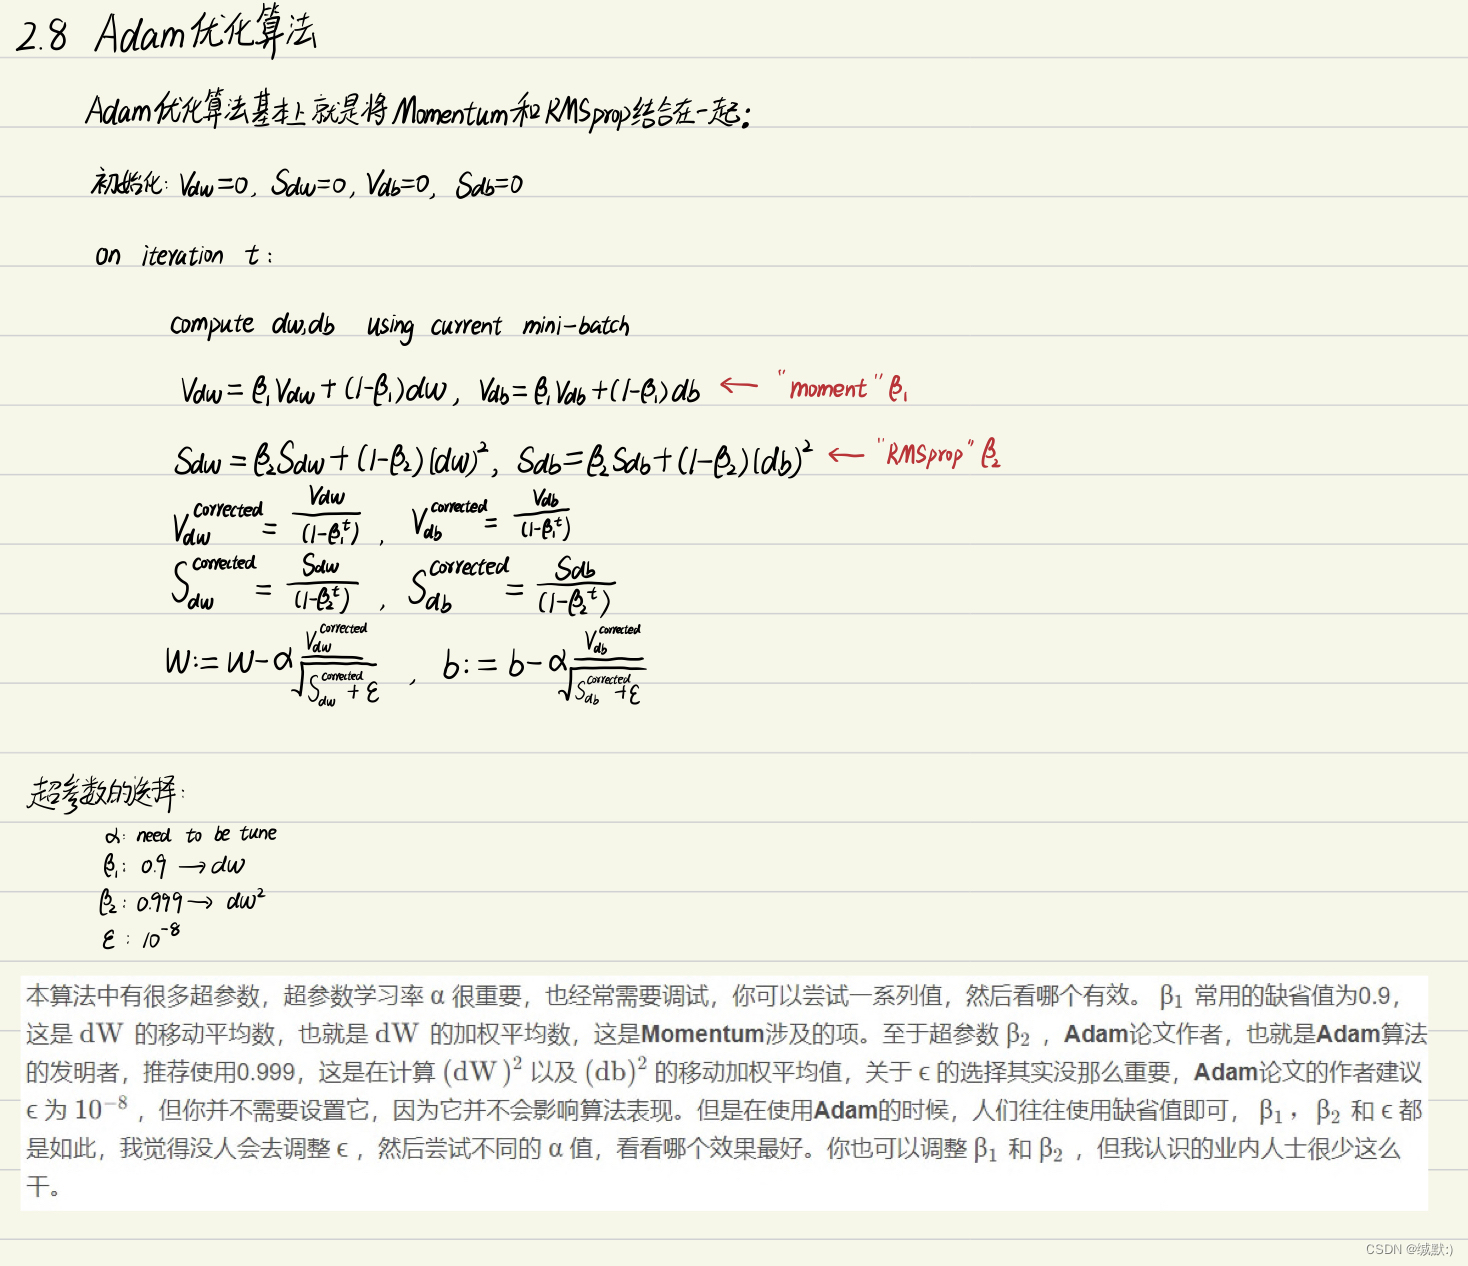 2.8 Adam优化算法
Adam优化算法基本上就是将Momentum和RMSprop结合在一起:
初始化: Vdw=0, Sdw=0, Vdb=0, Sdb=0
on iteration t:
compute dw,db using current mini-batch
Vdw = β₁Vdw + (1-β₁)dw, Vdb = β₁Vdb + (1-β₁)db ← "moment" β₁
Sdw = β₂Sdw + (1-β₂)(dw)², Sdb = β₂Sdb + (1-β₂)(db)² ← "RMSprop" β₂
Vdw^corrected = Vdw/(1-β₁^t), Vdb^corrected = Vdb/(1-β₁^t)
Sdw^corrected = Sdw/(1-β₂^t), Sdb^corrected = Sdb/(1-β₂^t)
W := W - α Vdw^corrected/√(Sdw^corrected + ε), b := b - α Vdb^corrected/√(Sdb^corrected + ε)
超参数的选择:
α: need to be tune
β₁: 0.9 → dw
β₂: 0.999 → dw²
ε: 10⁻⁸
本算法中有很多超参数，超参数学习率 α 很重要，也经常需要调试，你可以尝试一系列值，然后看哪个有效。 β₁ 常用的缺省值为0.9，
这是 dW 的移动平均数，也就是 dW 的加权平均数，这是Momentum涉及的项。至于超参数 β₂ ，Adam论文作者，也就是Adam算法
的发明者，推荐使用0.999，这是在计算 (dW)² 以及 (db)² 的移动加权平均值，关于 ϵ 的选择其实没那么重要，Adam论文的作者建议
ϵ 为 10⁻⁸ ，但你并不需要设置它，因为它并不会影响算法表现。但是在使用Adam的时候，人们往往使用缺省值即可， β₁ ， β₂ 和 ϵ 都
是如此，我觉得没人会去调整 ϵ ，然后尝试不同的 α 值，看看哪个效果最好。你也可以调整 β₁ 和 β₂ ，但我认识的业内人士很少这么
干。
CSDN @缄默:)